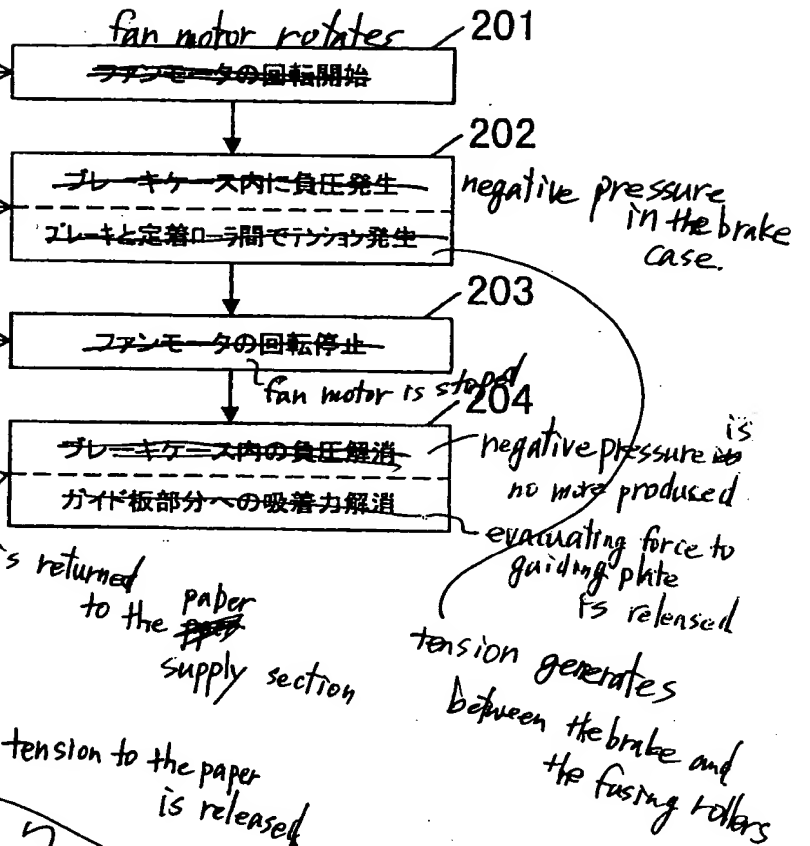 fan motor rotates
201
ファンモータの回転開始
202
ブレーキケース内に負圧発生
ブレーキと定着ローラ間でテンション発生
negative pressure
in the brake
case.
203
ファンモータの回転停止
fan motor is stoped
204
ブレーキケース内の負圧解消
ガイド板部分への吸着力解消
negative pressure is
no more produced
evacuating force to
guiding plate
is released
's returned
to the paper
supply section
tension generates
between the brake and
the fusing rollers
tension to the paper
is released